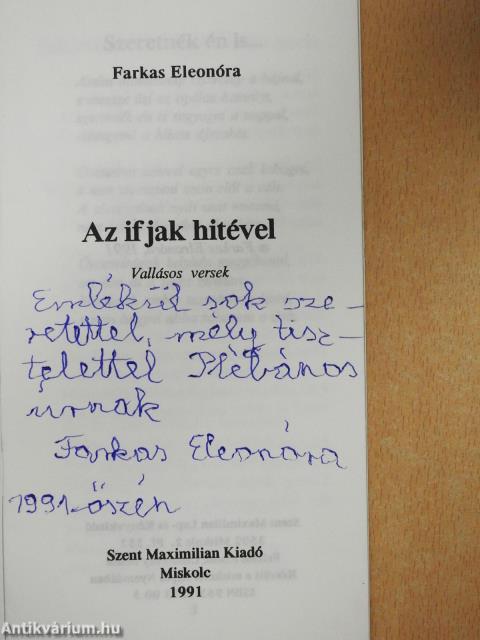 Farkas Eleonóra
Az ifjak hitével
Vallásos versek
Emlékül sok sze-
retettel, mély tisz-
telettel Plébános
úrnak
Farkas Eleonóra
1991-őszén
Szent Maximilian Kiadó
Miskolc
1991
Antikvárium.hu